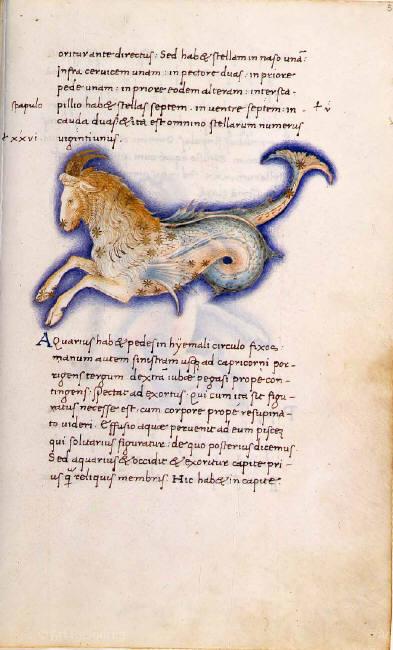 oritur ante directus: Sed hab& stellam in naso unã:
Infra cervicem unam: in pectore duas: in priore
pede unam: in priore eodem alteram: intersca-
spapulo pillio hab& stellas septem. in ventre septem: in - + v
cauda duas& ita est omnino stellarum numerus
+ xxvi vigintiunus.
AQuarius hab& pedes in hÿemali circulo fixos:
manum autem sinistram usq; ad capricorni por-
rigens tergum dextrã iubæ pegasi prope con-
tingens: spectat ad exortus: qui cum ita sit figu-
ratus necesse est: cum corpore prope resupina
to videri. Effusio aquæ pervenit ad eum piscez
qui solitarius figuratur: de quo posterius dicemus.
Sed aquarius & occidit & exoritur capite pri-
us q̃ reliquis membris: Hic hab& in capite